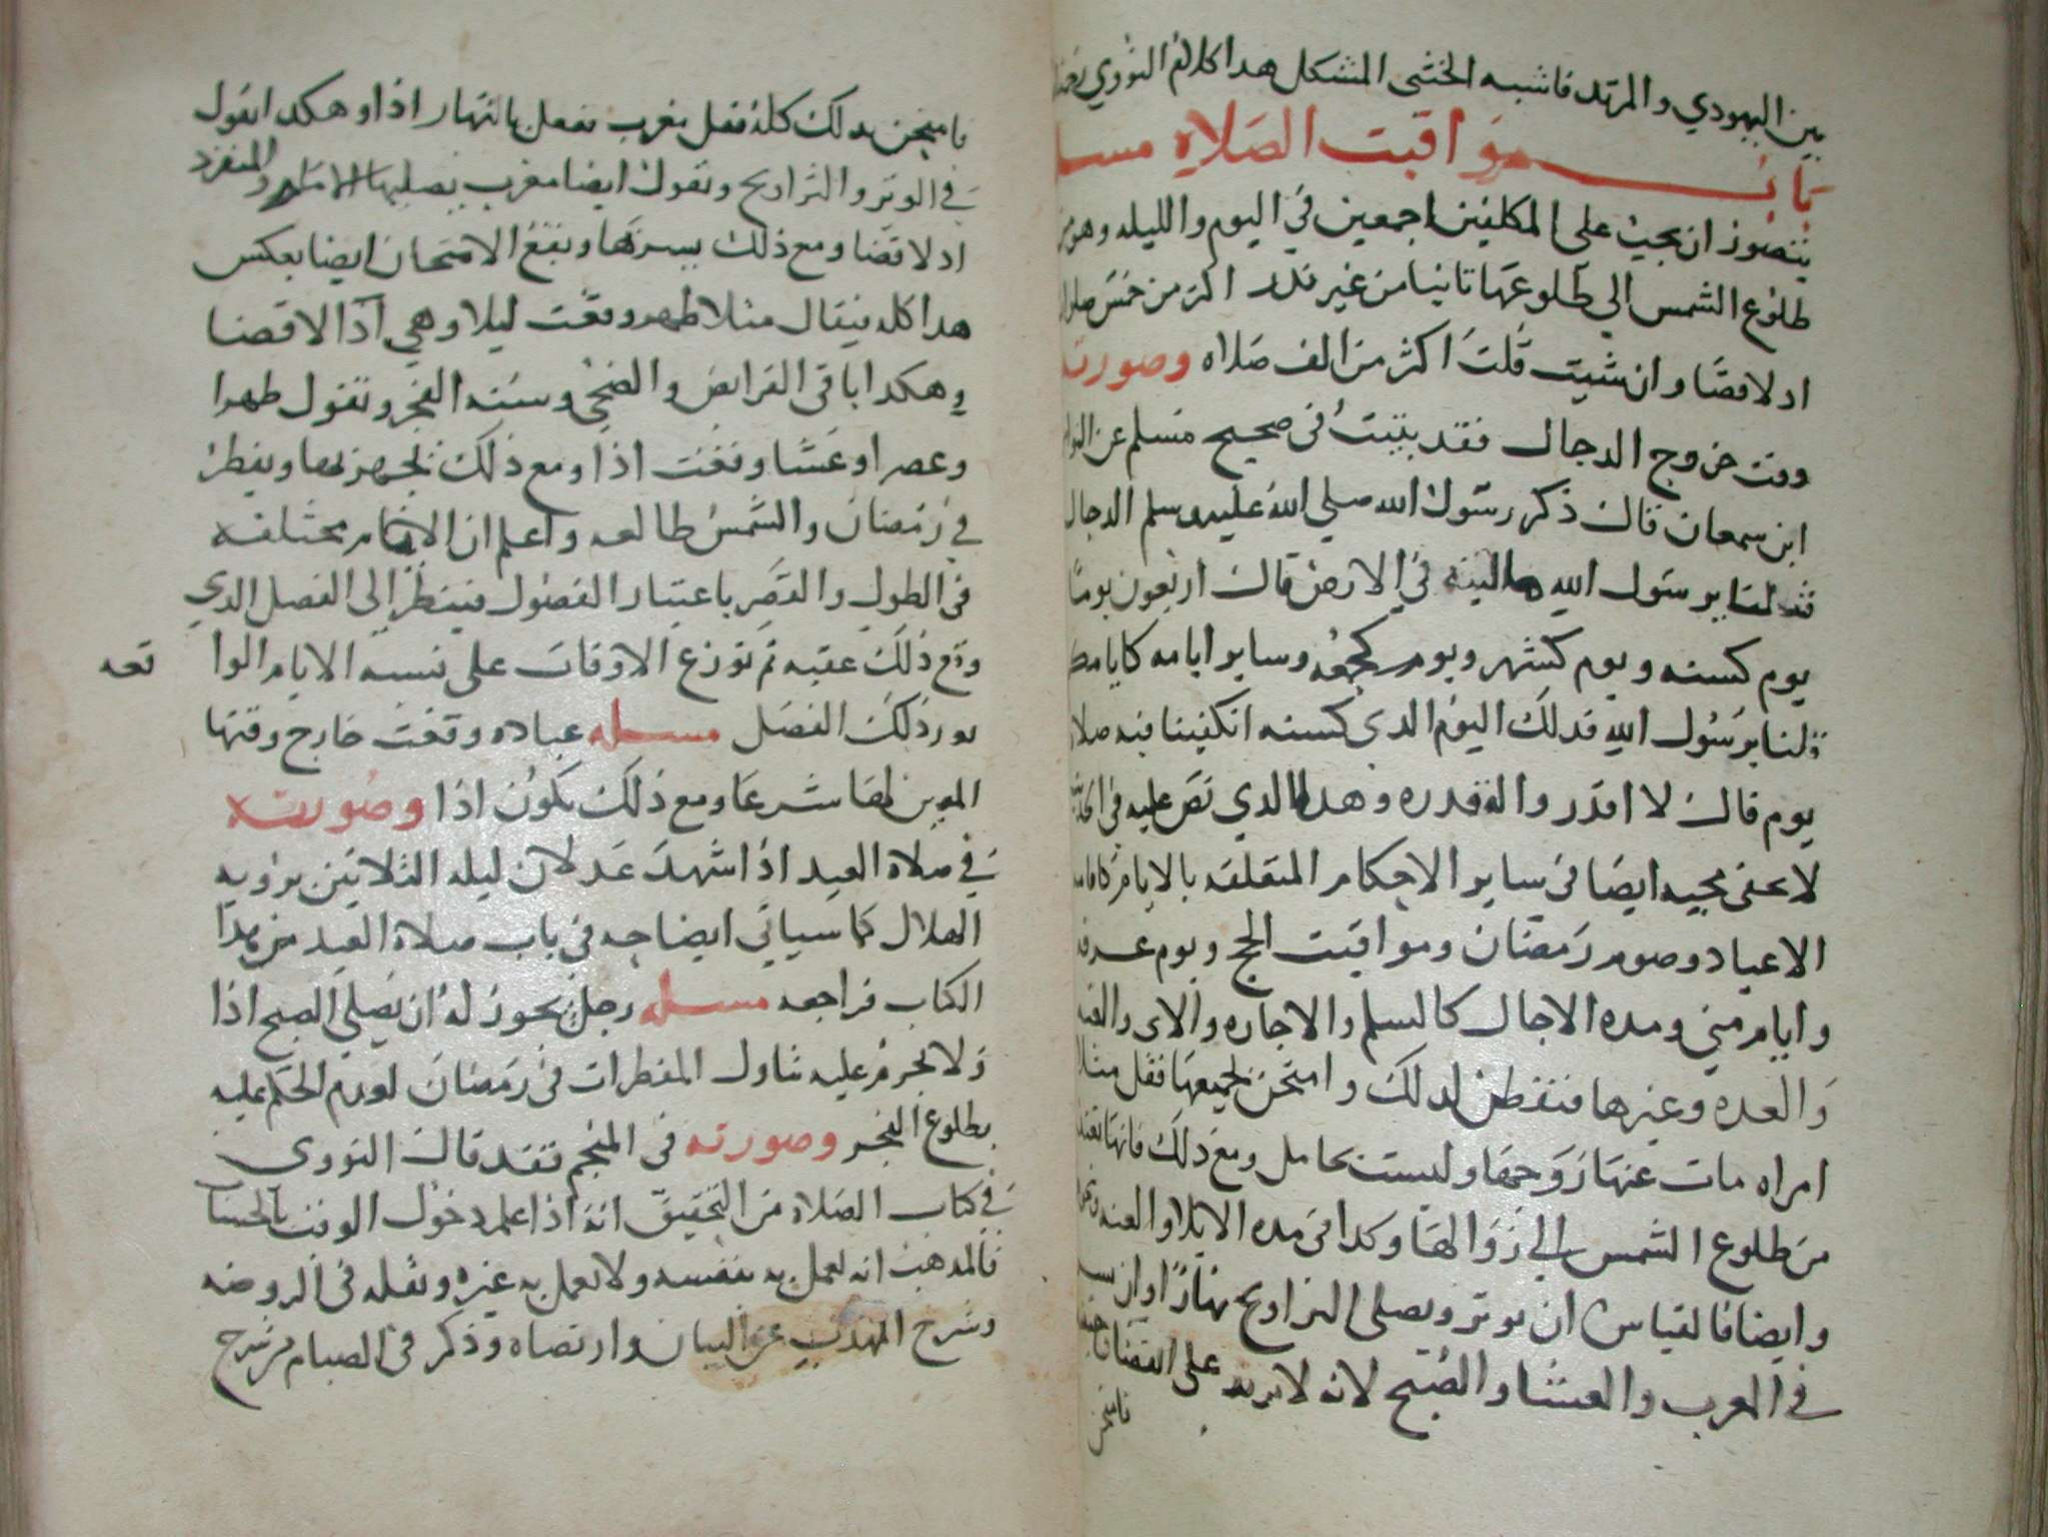 بين اليهودي والمرتد فاشبه الخنثى المشكل هدا كلام النووي
باب مواقيت الصلاه
يتصور ان يجب على المكلفين اجمعين في اليوم والليله وهو من
طلوع الشمس الي طلوعها ثانيا من غير نذر اكثر من خمس
اد لا قضا وان شيت قلت اكثر من الف صلاه وصورته
وقت خروج الدجال فقد ثبت في صحيح مسلم عن
ابن سمعان قال ذكر رسول الله صلي الله عليه وسلم الدجال
قلنا يرسول الله ما لبثه في الارض قال اربعون يوما
يوم كسنه ويوم كشهر ويوم كجمعه وساير ايامه كايامكم
قلنا يرسول الله فدلك اليوم الدي كسنه اتكفينا فيه صلاه
يوم قال لا اقدروا له قدره وهدا الدي نص عليه في
لا يخفى مجيه ايضا في ساير الاحكام المتعلقه بالايام كاقامه
الاعياد وصوم رمضان ومواقيت الحج ويوم عرفه
وايام مني ومده الاجال كالسلم والاجاره والا
والعده وغيرها فتفطن لدلك وامتحن بجميعها فقل مثلا
امراه مات عنها زوجها وليست بحامل ومع ذلك فانها تعتد
من طلوع الشمس الي زوالها وكدا في مده الايلا والعنه
وايضا فالقياس ان يوتر ويصلى التراويح نهارا وان
في المغرب والعشا والصبح لانه لا يزيد على القضا
فامتحن
فامتحن بدلك كله فقل مغرب تفعل بالنهار اذا وهكدا نقول
في الوتر والتراويح ونقول ايضا مغرب يصليها الامام والمنفرد
اد لا قضا ومع ذلك يسر بها ويقع الامتحان ايضا بعكس
هدا كله فيقال مثلا ظهر وقعت ليلا وهي اذا لا قضا
وهكدا باقي الفرايض والضحى وسنه الفجر ونقول ظهرا
وعصرا وعشا وقعت اذا ومع ذلك يجهر بها ويفطر
في رمضان والشمس طالعه واعلم ان الايام مختلفه
في الطول والقصر باعتبار الفصول فينظر الى الفصل الدي
وقع ذلك عقبه ثم توزع الاوقات على نسبه الايام الوا
قعه
في ذلك الفصل مسله عباده وقعت خارج وقتها
المعين لها شرعا ومع ذلك يكون اذا وصورته
في صلاه العيد اذا شهد عدلان ليله الثلاثين بروية
الهلال كما سياتي ايضاحه في باب صلاة العيد من هدا
الكتاب فراجعه مسله رجل يجوز له ان يصلي الصبح اذا
ولا يحرم عليه تناول المفطرات في رمضان لعدم الحكم عليه
بطلوع الفجر وصورته في المنجم فقد قال النووي
في كتاب الصلاه من التحقيق انه اذا علم دخول الوقت بالحساب
فالمدهب انه يعمل به بنفسه ولا يعمل به غيره ونقله في الروضه
وشرح المهدب عن البيان وارتضاه وذكر في الصيام من شرح